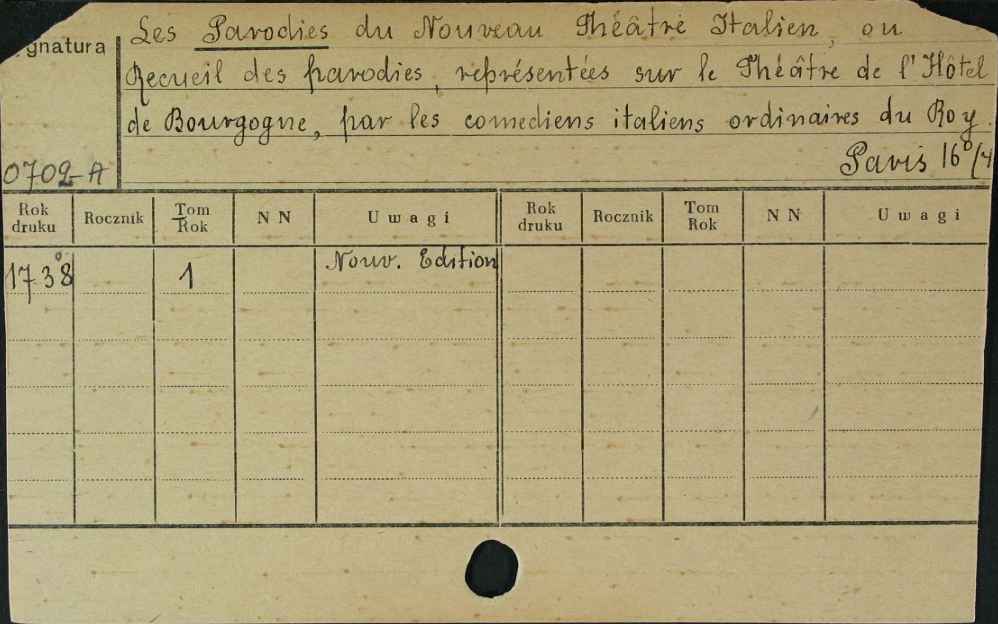 Les Parodies du Nouveau Théâtre Italien, ou
gnatura
Recueil des parodies, représentées sur le Théâtre de l'Hôtel
de Bourgogne, par les comediens italiens ordinaires du Roy.
0702-A Paris 16°
Rok druku Rocznik Tom Rok NN Uwagi Rok druku Rocznik Tom Rok NN Uwagi
1738 1 Nouv. Edition